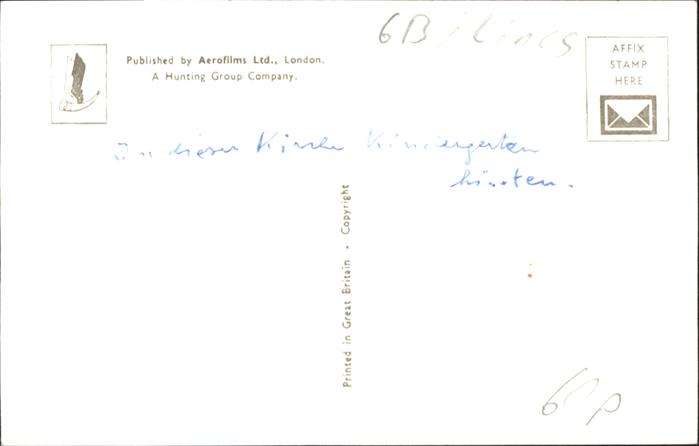 6B/Lincs
Published by Aerofilms Ltd., London.
A Hunting Group Company.
AFFIX
STAMP
HERE
In dieser Kirche Kindergarten
hinten.
Printed in Great Britain · Copyright